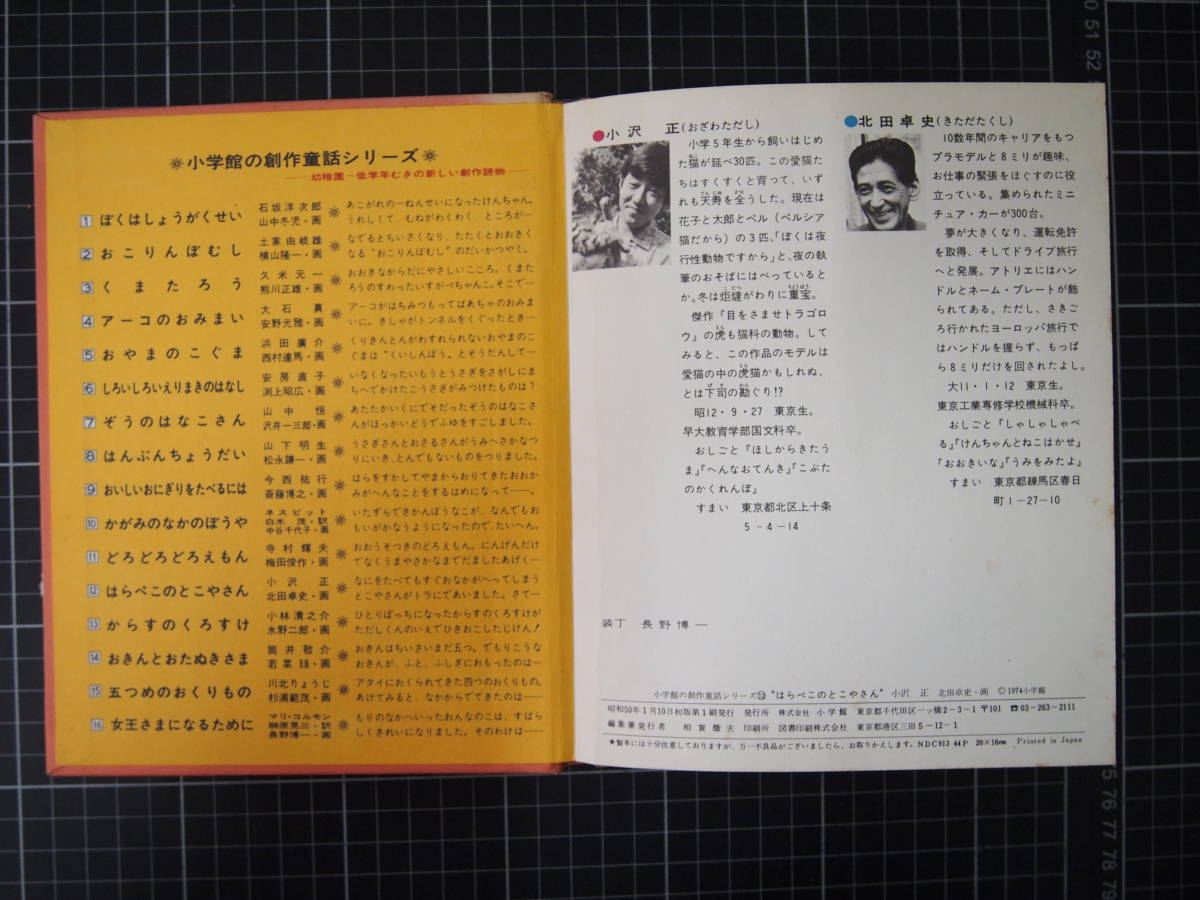 ※小学館の創作童話シリーズ※
幼稚園~低学年むきの新しい創作読物
1 ぼくはしょうがくせい 石坂洋次郎 山中冬児・画 あこがれの一ねんせいになったけんちゃん。
うれしくて、むねがわくわく、ところが—
2 おこりんぼむし 土家由岐雄 横山隆一・画 なでるとちいさくなり、たたくとおおきく
なる“おこりんぼむし”のだいかつやく。
3 くまたろう 久米元一 熊川正雄・画 おおきなからだにやさしいこころ。くまた
ろうのすわったいすがぺちゃんこ。そこで—
4 アーコのおみまい 大石真 安野光雅・画 アーコがはちみつもってばあちゃのおみま
いに。きしゃがトンネルをくぐったとき—
5 おやまのこぐま 浜田廣介 西村達馬・画 くりきんとんがわすれられないおやまのこ
ぐまは“くいしんぼう。とそうだんして—
6 しろいしろいえりまきのはなし 安房直子 渕上昭広・画 いなくなったいもうとうさぎをさがしにま
ちへでかけたこうさぎがみつけたものは?
7 ぞうのはなこさん 山中恒 沢井一三郎・画 あたたかいくにでそだったぞうのはなこさ
んがほっかいどうでふゆをすごしました。
8 はんぶんちょうだい 山下明生 松永謙一・画 うさぎさんとおさるさんがうみへさかなつ
りにいき、とんでもないものをつりました。
9 おいしいおにぎりをたべるには 今西祐行 斎藤博之・画 はらをすかしてやまからおりてきたおおか
みがへんなことをするはめになって—。
10 かがみのなかのぼうや ネスビット 白木茂・訳 中谷千代子・画 いたずらできかんぼうなこが、なんでもお
もいがかなうようになったので、たいへん。
11 どろどろどろえもん 寺村輝夫 梅田俊作・画 おおうそつきのどろえもん。にんげんだけ
でなくうまやさかなまでだましたあげく…
12 はらぺこのとこやさん 小沢正 北田卓史・画 なにをたべてもすぐおなかがへってしまう
とこやさんがトラにであいました。さて—
13 からすのくろすけ 小林清之介 水野二郎・画 ひとりぼっちになったからすのくろすけが
ただしくんのいえでひきおこしたじけん!
14 おきんとおたぬきさま 筒井敬介 若菜珪・画 おきんはちいさいまだ五つ。でもりこうな
おきんが、ふと、ふしぎにおもったのは—
15 五つめのおくりもの 川北りょうじ 杉浦範茂・画 アタイにおくられてきた四つのおくりもの。
あけてみると、なかからでてきたのは—
16 女王さまになるために マリ・コルモン 榊原晃三・訳 長野博一・画 もりのなかへいったおんなのこは、すばら
しくきれいになりました。そのわけは—
●小沢 正(おざわただし)
小学5年生から飼いはじめ
た猫が延べ30匹。この愛猫た
ちはすくすくと育って、いず
れも天寿を全うした。現在は
花子と太郎とペル(ペルシア
猫だから)の3匹、「ぼくは夜
行性動物ですから」と、夜の執
筆のおそばにはべっていると
か。冬は炬燵がわりに重宝。
傑作『目をさませトラゴロ
ウ』の虎も猫科の動物。して
みると、この作品のモデルは
愛猫の中の虎猫かもしれぬ、
とは下司の勘ぐり!?
昭12・9・27 東京生。
早大教育学部国文科卒。
おしごと『ほしからきたう
ま』『へんなおてんき』『こぶた
のかくれんぼ』
すまい 東京都北区上十条
5-4-14
●北田卓史(きただたくし)
10数年間のキャリアをもつ
プラモデルと8ミリが趣味、
お仕事の緊張をほぐすのに役
立っている。集められたミニ
チュア・カーが300台。
夢が大きくなり、運転免許
を取得、そしてドライブ旅行
へと発展。アトリエにはハン
ドルとネーム・プレートが飾
られてある。ただし、さきご
ろ行かれたヨーロッパ旅行で
はハンドルを握らず、もっぱ
ら8ミリだけを回されたよし。
大11・1・12 東京生。
東京工業専修学校機械科卒。
おしごと『しゃしゃしゃべ
る』『けんちゃんとねこはかせ』
『おおきいな』『うみをみたよ』
すまい 東京都練馬区春日
町1-27-10
装丁 長野博一
小学館の創作童話シリーズ⑫“はらぺこのとこやさん” 小沢 正 北田卓史・画 ©1974小学館
昭和50年1月10日初版第1刷発行 発行所 株式会社 小学館 東京都千代田区一ッ橋2-3-1 〒101 ☎03-263-2111
編集兼発行者 相賀徹夫 印刷所 図書印刷株式会社 東京都港区三田5-12-1
★製本には十分注意しておりますが、万一不良品がございましたら、お取りかえします。NDC913 44P 20×16cm Printed in Japan
50 51 52
75 76 77 78 79